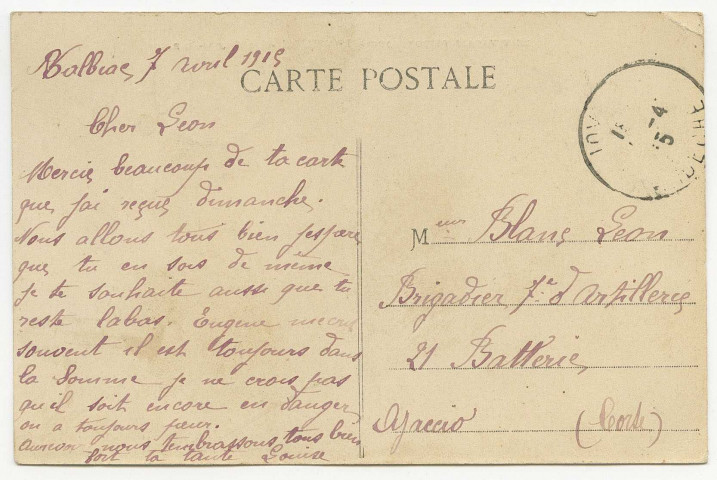 Valbiac 7 avril 1915
CARTE POSTALE
Cher Leon
Mercie beaucoup de ta carte
que j'ai reçue dimanche.
Nous allons tous bien j'espere
que tu en sois de même
je te souhaite aussi que tu
reste labas. Eugene mecris
souvent il est toujours dans
la Somme je ne crois pas
qu'il soit encore en danger
on a toujours peur.
aurevoir nous tembrassons tous bien
fort ta tante Louise
Meur Blanc Leon
Brigadier 7e d'artillerie
21 Batterie
Ajaccio (Corse)